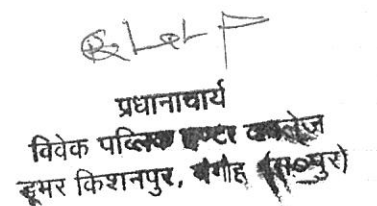 प्रधानाचार्य
विवेक पब्लिक इण्टर कालेज
डूमर किशनपुर, गंगोह (स०पुर)